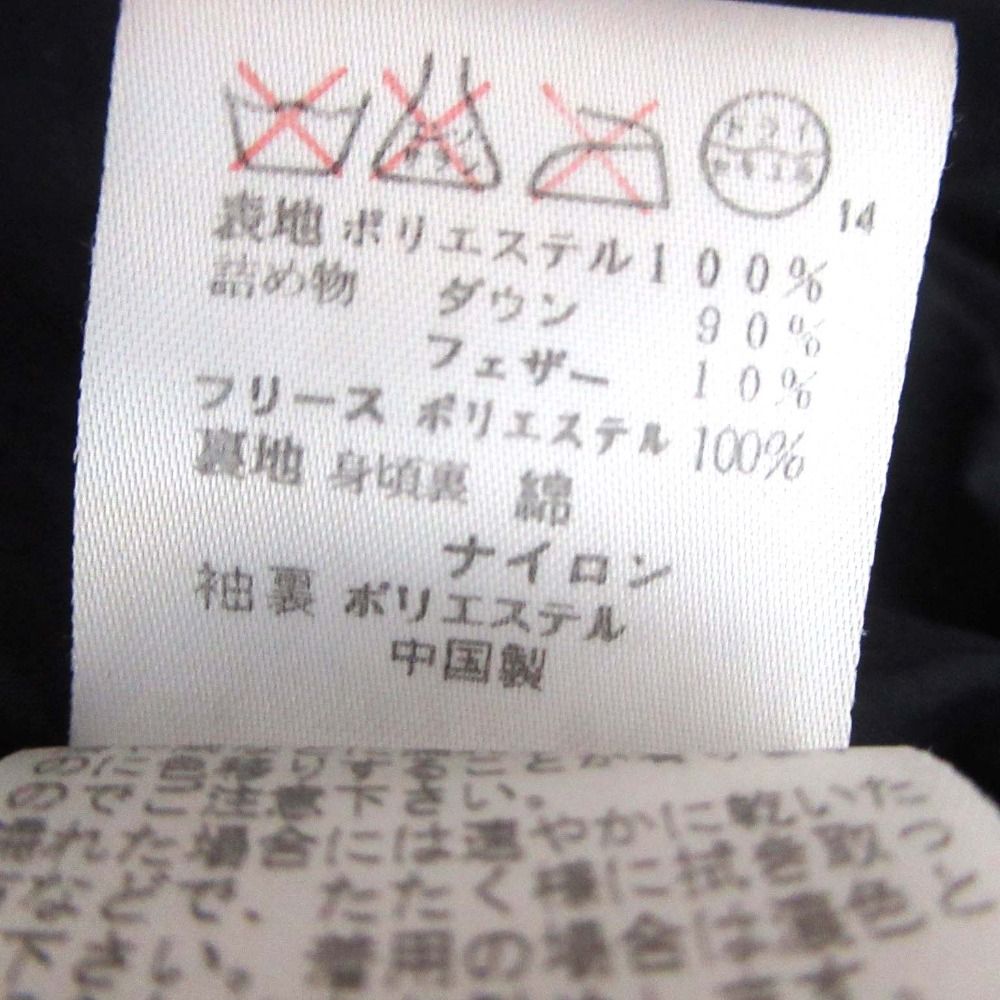 エンソ
サラシ
ドライ
セキユ系
14
表地 ポリエステル100%
詰め物 ダウン 90%
フェザー 10%
フリース ポリエステル 100%
裏地 身頃裏 綿
ナイロン
袖裏 ポリエステル
中国製
のに色移りすること
のでご注意下さい。
濡れた場合には速やかに乾いた
などで、たたく様に拭き取っ
下さい。着用の場合は濃色と